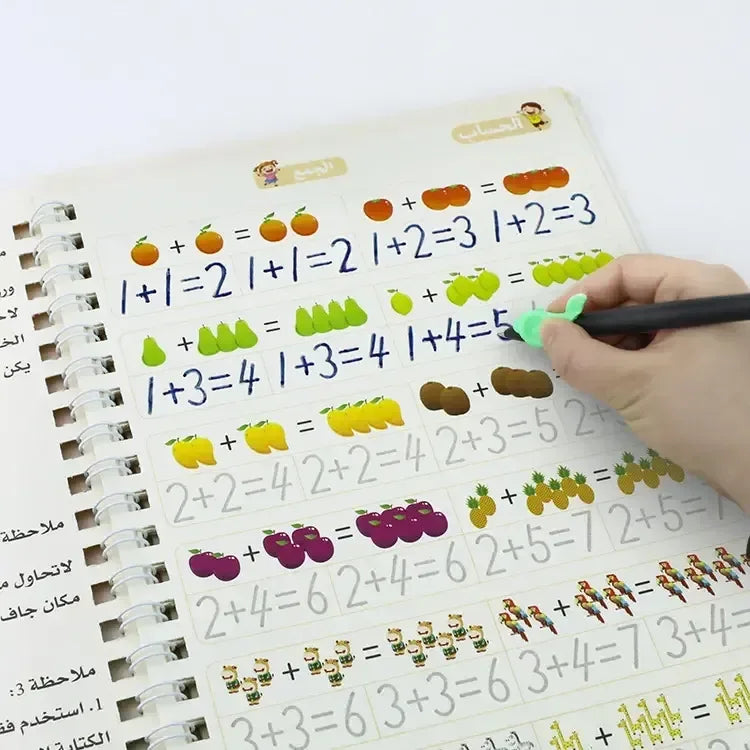 الحساب
الجمع
1+1=2 1+1=2 1+2=3 1+2=3
1+3=4 1+3=4 1+4=5
2+2=4 2+2=4 2+3=5
2+4=6 2+4=6 2+5=7 2+5=7
3+3=6 3+3=6 3+4=7 3+4=
ملاحظة
لاتحاول
مكان جاف
ملاحظة 3:
1. استخدم فقط
الكتابة